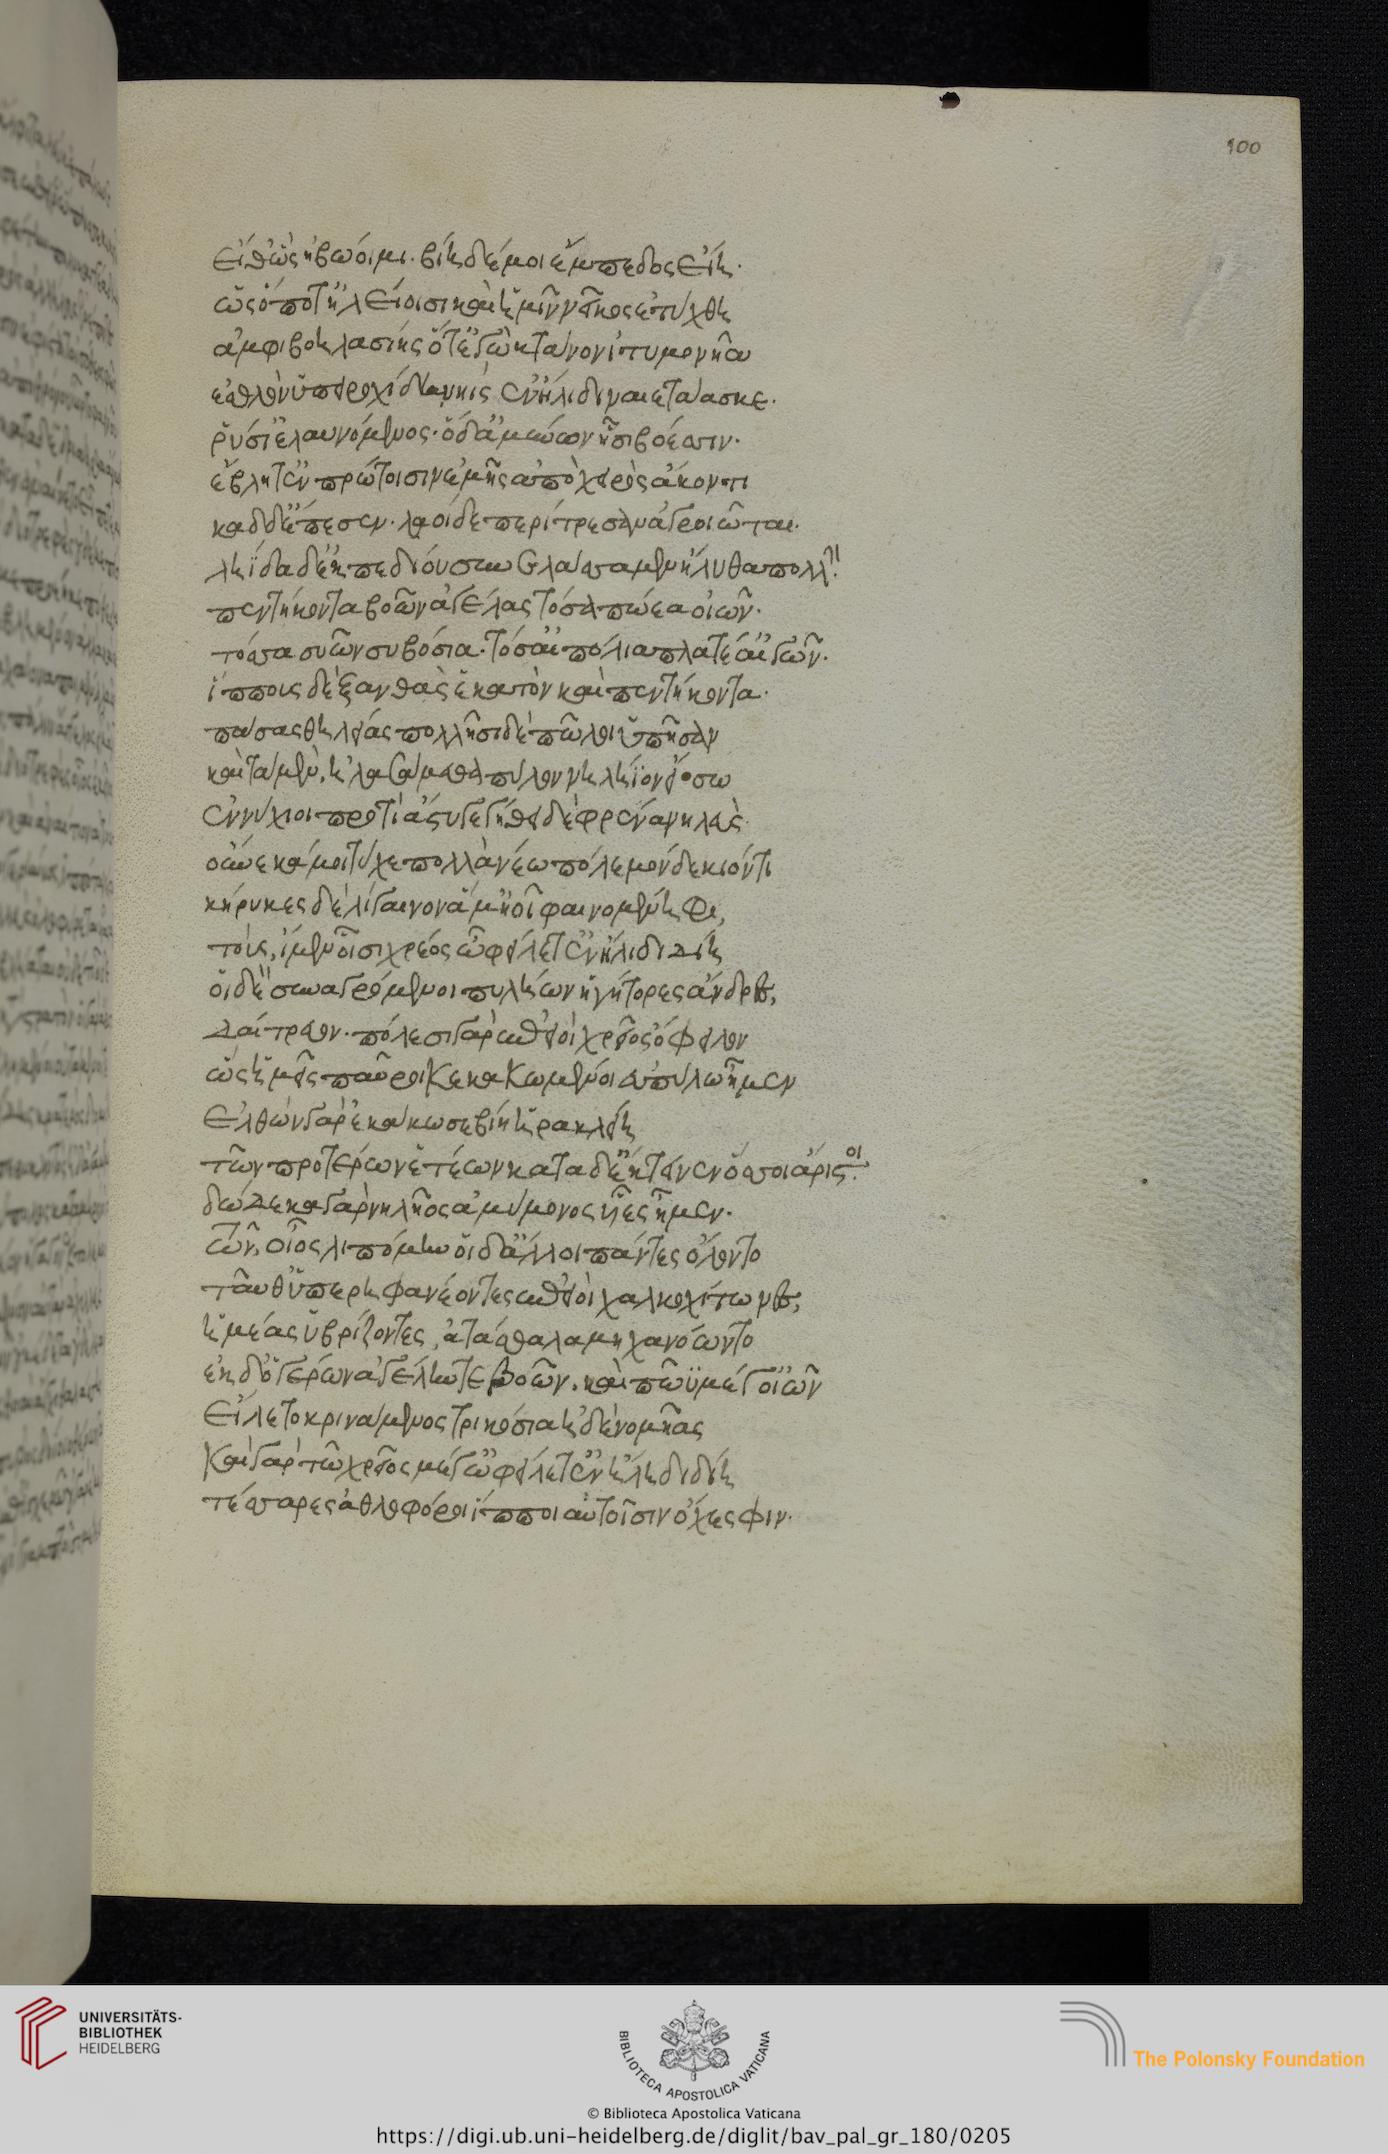 100
εἴθ' ὣς ἡβώοιμι. βίη δέ μοι ἔμπεδος εἴη.
ὡς ὁπότ' ἠλείοισι καὶ ἡμῖν νεῖκος ἐτύχθη
ἀμφὶ βοηλασίης ὅτ' ἐγὼ κτάνον ἰτυμονῆα
ἐσθλὸν ὑπειροχίδην κιὸς ἐν ἤλιδι ναιετάασκε.
ῥύσι' ἐλαυνόμενος. ὁ δ' ἀμύνων ᾗσι βόεσσιν.
ἔβλητ' ἐν πρώτοισιν ἐμῆς ἀπὸ χειρὸς ἄκοντι
καδδ' ἔπεσεν. λαοὶ δὲ περίτρεσαν ἀγροιῶται.
ληΐδα δ' ἐκ πεδίου συνελάσσαμεν ἤλυθα πολλὴν.
πεντήκοντα βοῶν ἀγέλας τόσα πώεα οἰῶν.
τόσσα συῶν συβόσια. τόσ' αἰπόλια πλατέ' αἰγῶν.
ἵππους δὲ ξανθὰς ἑκατὸν καὶ πεντήκοντα.
πάσας θηλείας πολλῇσι δὲ πῶλοι ὑπῆσαν
καὶ τὰ μὲν ἠλασάμεσθα πύλον νηλήϊον εἴσω
ἐννύχιοι προτὶ ἄστυ γεγήθει δὲ φρένα νηλεὺς.
οὕνεκά μοι τύχε πολλὰ νέω πόλεμον δὲ κιόντι
κήρυκες δὲ λίγαινον ἅμ' ἠοῖ φαινομένηφι,
τοὺς ἴμεν οἷσι χρέος ὠφείλετ' ἐν ἤλιδι δίῃ
οἱ δὲ συναγρόμενοι πυλίων ἡγήτορες ἄνδρες,
δαίτρευον. πόλεσι γὰρ ἐπειοὶ χρεῖος ὄφειλον
ὡς ἡμεῖς παῦροι κεκακωμένοι ἐν πύλῳ ἦμεν
ἐλθὼν γάρ ἐκάκωσε βίη ἡρακληείη
τῶν προτέρων ἐτέων κατὰ δ' ἔκταθεν ὅσσοι ἄριστοι.
δώδεκα γὰρ νηλῆος ἀμύμονος υἱέες ἦμεν.
τῶν οἶος λιπόμην οἱ δ' ἄλλοι πάντες ὄλοντο
ταῦθ' ὑπερηφανέοντες ἐπειοὶ χαλκοχίτωνες,
ἡμέας ὑβρίζοντες, ἀτάσθαλα μηχανόωντο
ἐκ δ' ὁ γέρων ἀγέλην τε βοῶν, καὶ πῶϋ μέγ' οἰῶν
εἵλετο κρινάμενος τριηκόσια ἠδὲ νομῆας
καὶ γὰρ τῷ χρεῖος μέγ' ὠφείλετ' ἐν ἤλιδι δίῃ
τέσσαρες ἀθλοφόροι ἵπποι αὐτοῖσιν ὄχεσφιν.
UNIVERSITÄTS-
BIBLIOTHEK
HEIDELBERG
BIBLIOTECA APOSTOLICA VATICANA
The Polonsky Foundation
© Biblioteca Apostolica Vaticana
https://digi.ub.uni-heidelberg.de/diglit/bav_pal_gr_180/0205